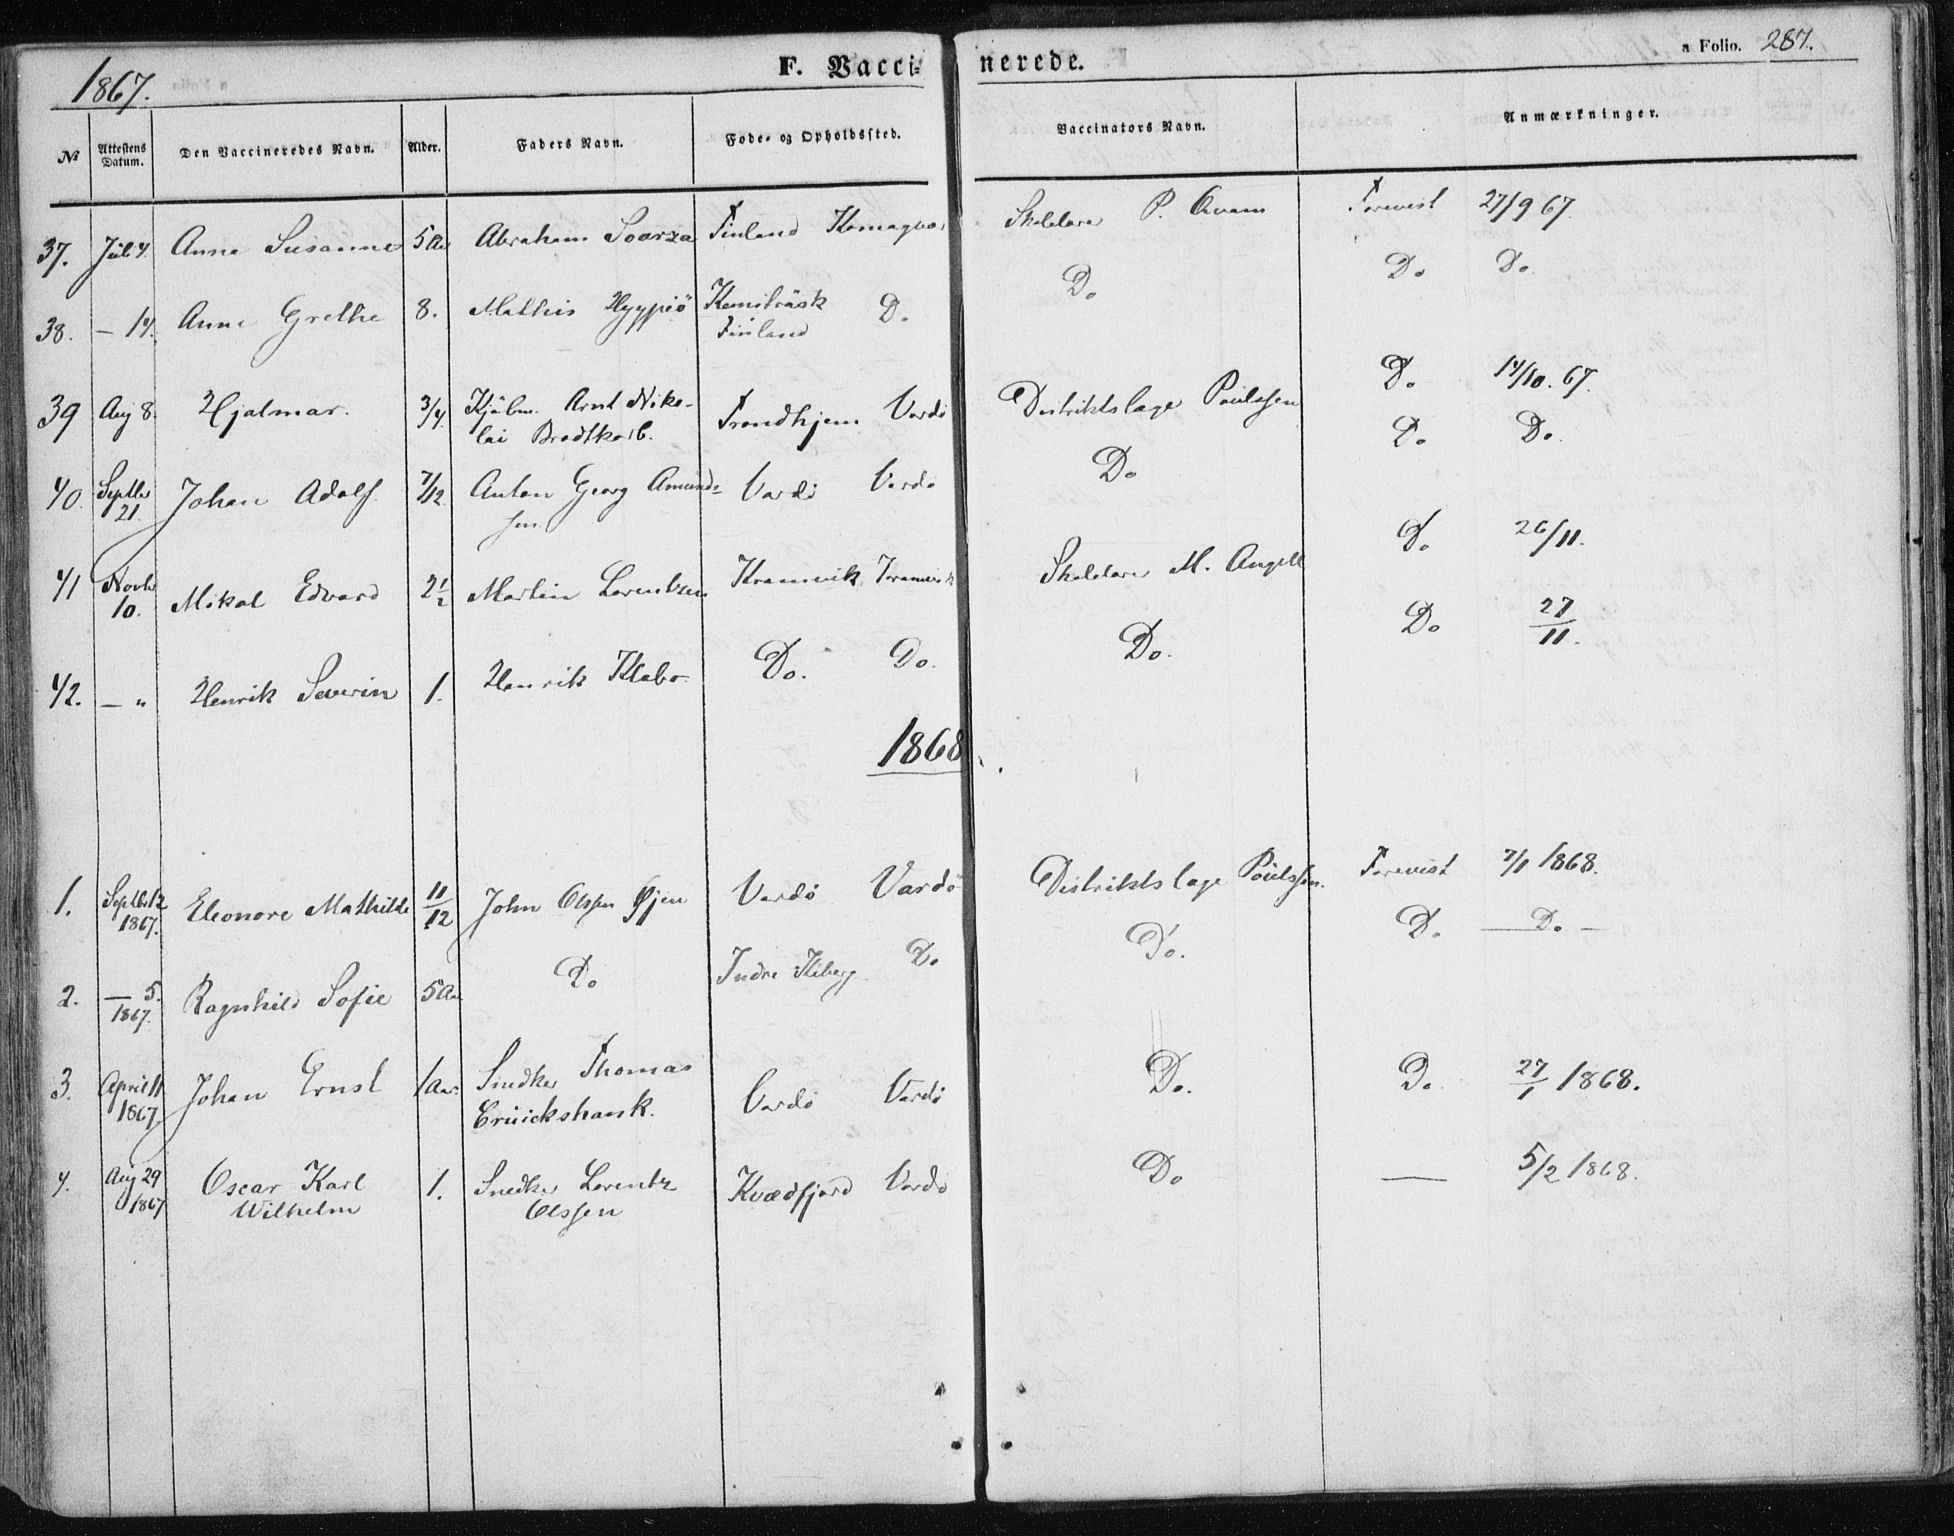 1867.
F. Vaccinerede.
a Folio. 287.
№ Attestens Datum. Den Vaccineredes Navn. Alder. Faders Navn. Føde- og Opholdssted. Vaccinators Navn. Anmærkninger.
37. Juli 4. Anne Susanne 5 Aar Abraham Finland Komagvær Skolelærer P. Forevist 27/9 67.
38. — 14. Anne Grethe 8. Mathis Hyypiö Kemiträsk Do Do Do Do
Finland
39 Aug 8. Hjalmar. 3/4. Kjøbm. Arnt Niko- Trondhjem Vardö Distriktslæge Poulssen Do 14/10. 67.
lai Brodtkorb.
40. Septbr 21. Johan Adolf. 7/12 Anton Georg Amund- Vardö Vardö Do Do Do.
sen
41 Novbr 10. Mikal Edvard 2½ Martin Lorentzen Kramvik Kramvik Skolelærer M. Angell Do 26/11.
42. — " Henrik Severin 1. Henrik Klabo Do. Do. Do. Do 27/11.
1868.
1. Septbr 12 1867. Eleonore Mathilde 11/12 John Olssen Øjen Vardö Vardö Distriktslæge Poulssen. Forevist 7/1 1868.
2. — 5. 1867. Ragnhild Sofie 5 Aar Do Indre Kiberg Do Do. Do. — Do. —
3. April 11 1867 Johan Ernst 1 Aar. Snedker Thomas Vardö Vardö Do. Do. 27/1 1868.
Cruickshank.
4. Aug 29 1867 Oscar Karl 1. Snedker Lorentz Kvædfjord Vardö Do — 5/2 1868.
Wilhelm Olssen